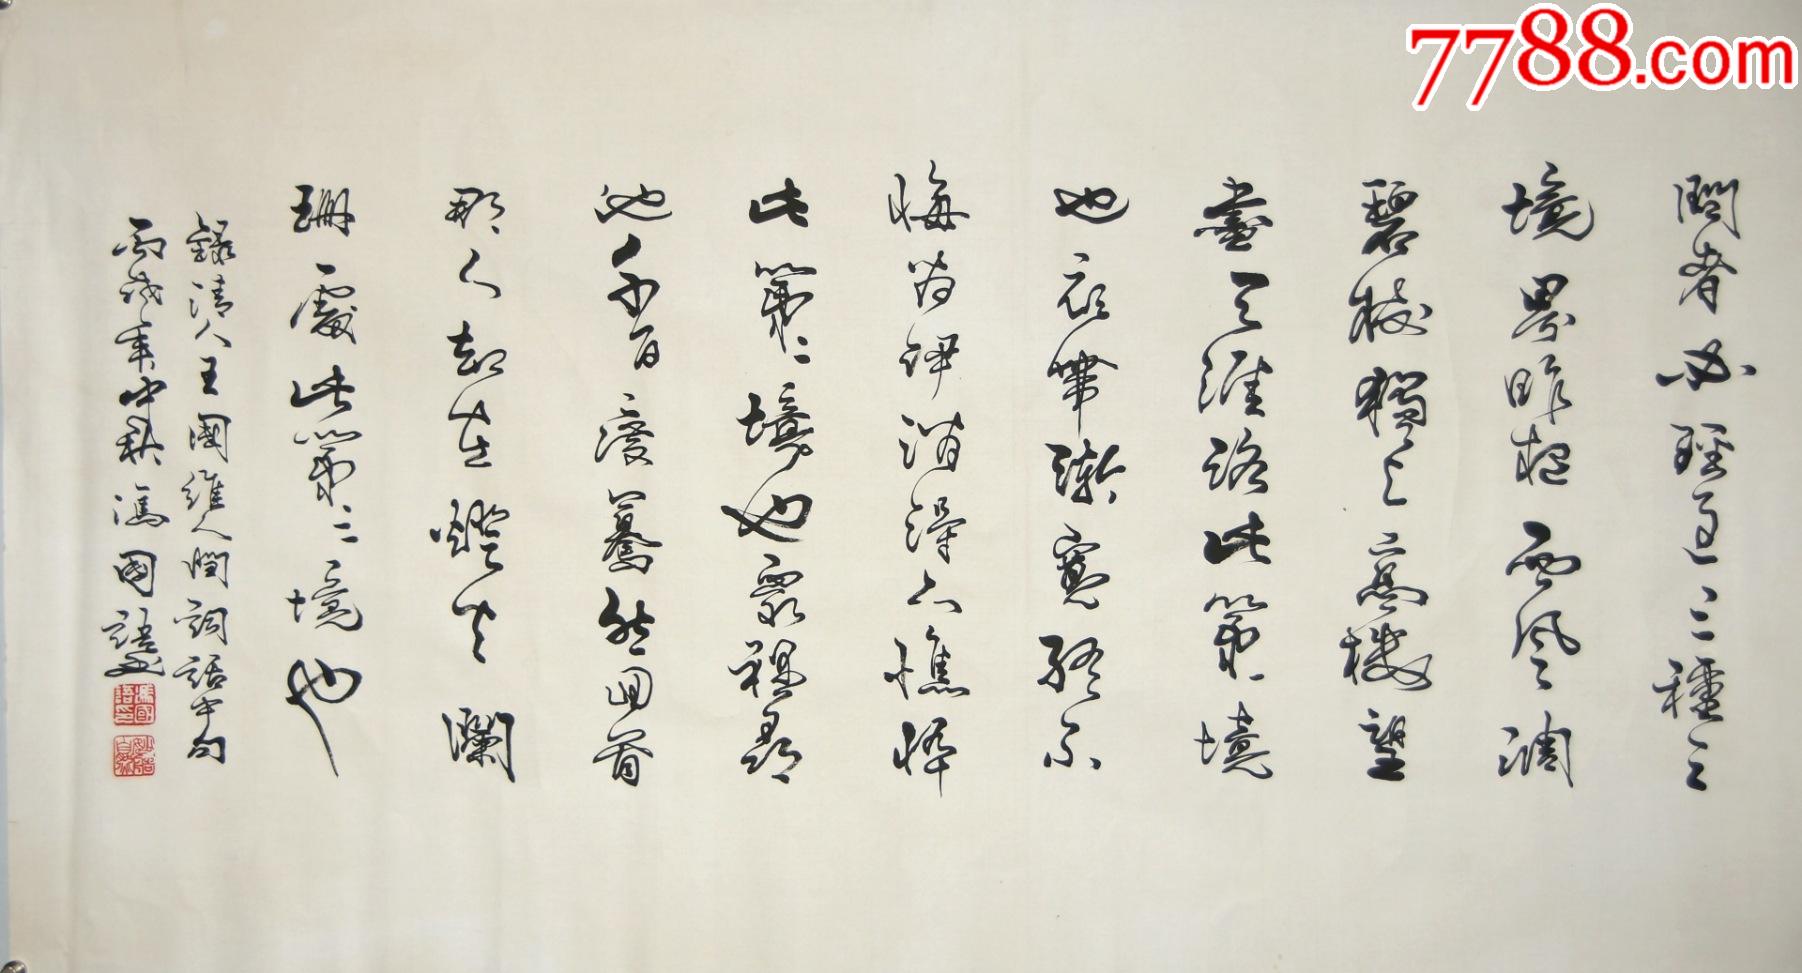 7788.com
問者必經過三種之
境界昨夜西風凋
碧樹獨上高樓望
盡天涯路此第一境
也衣帶漸寬終不
悔為伊消得人憔悴
此第二境也眾裡尋
他千百度驀然回首
那人卻在燈火瀾
珊處此第三境也
錄清人王國維人間詞話中句
丙戌年中秋馮國語書
馮國語印